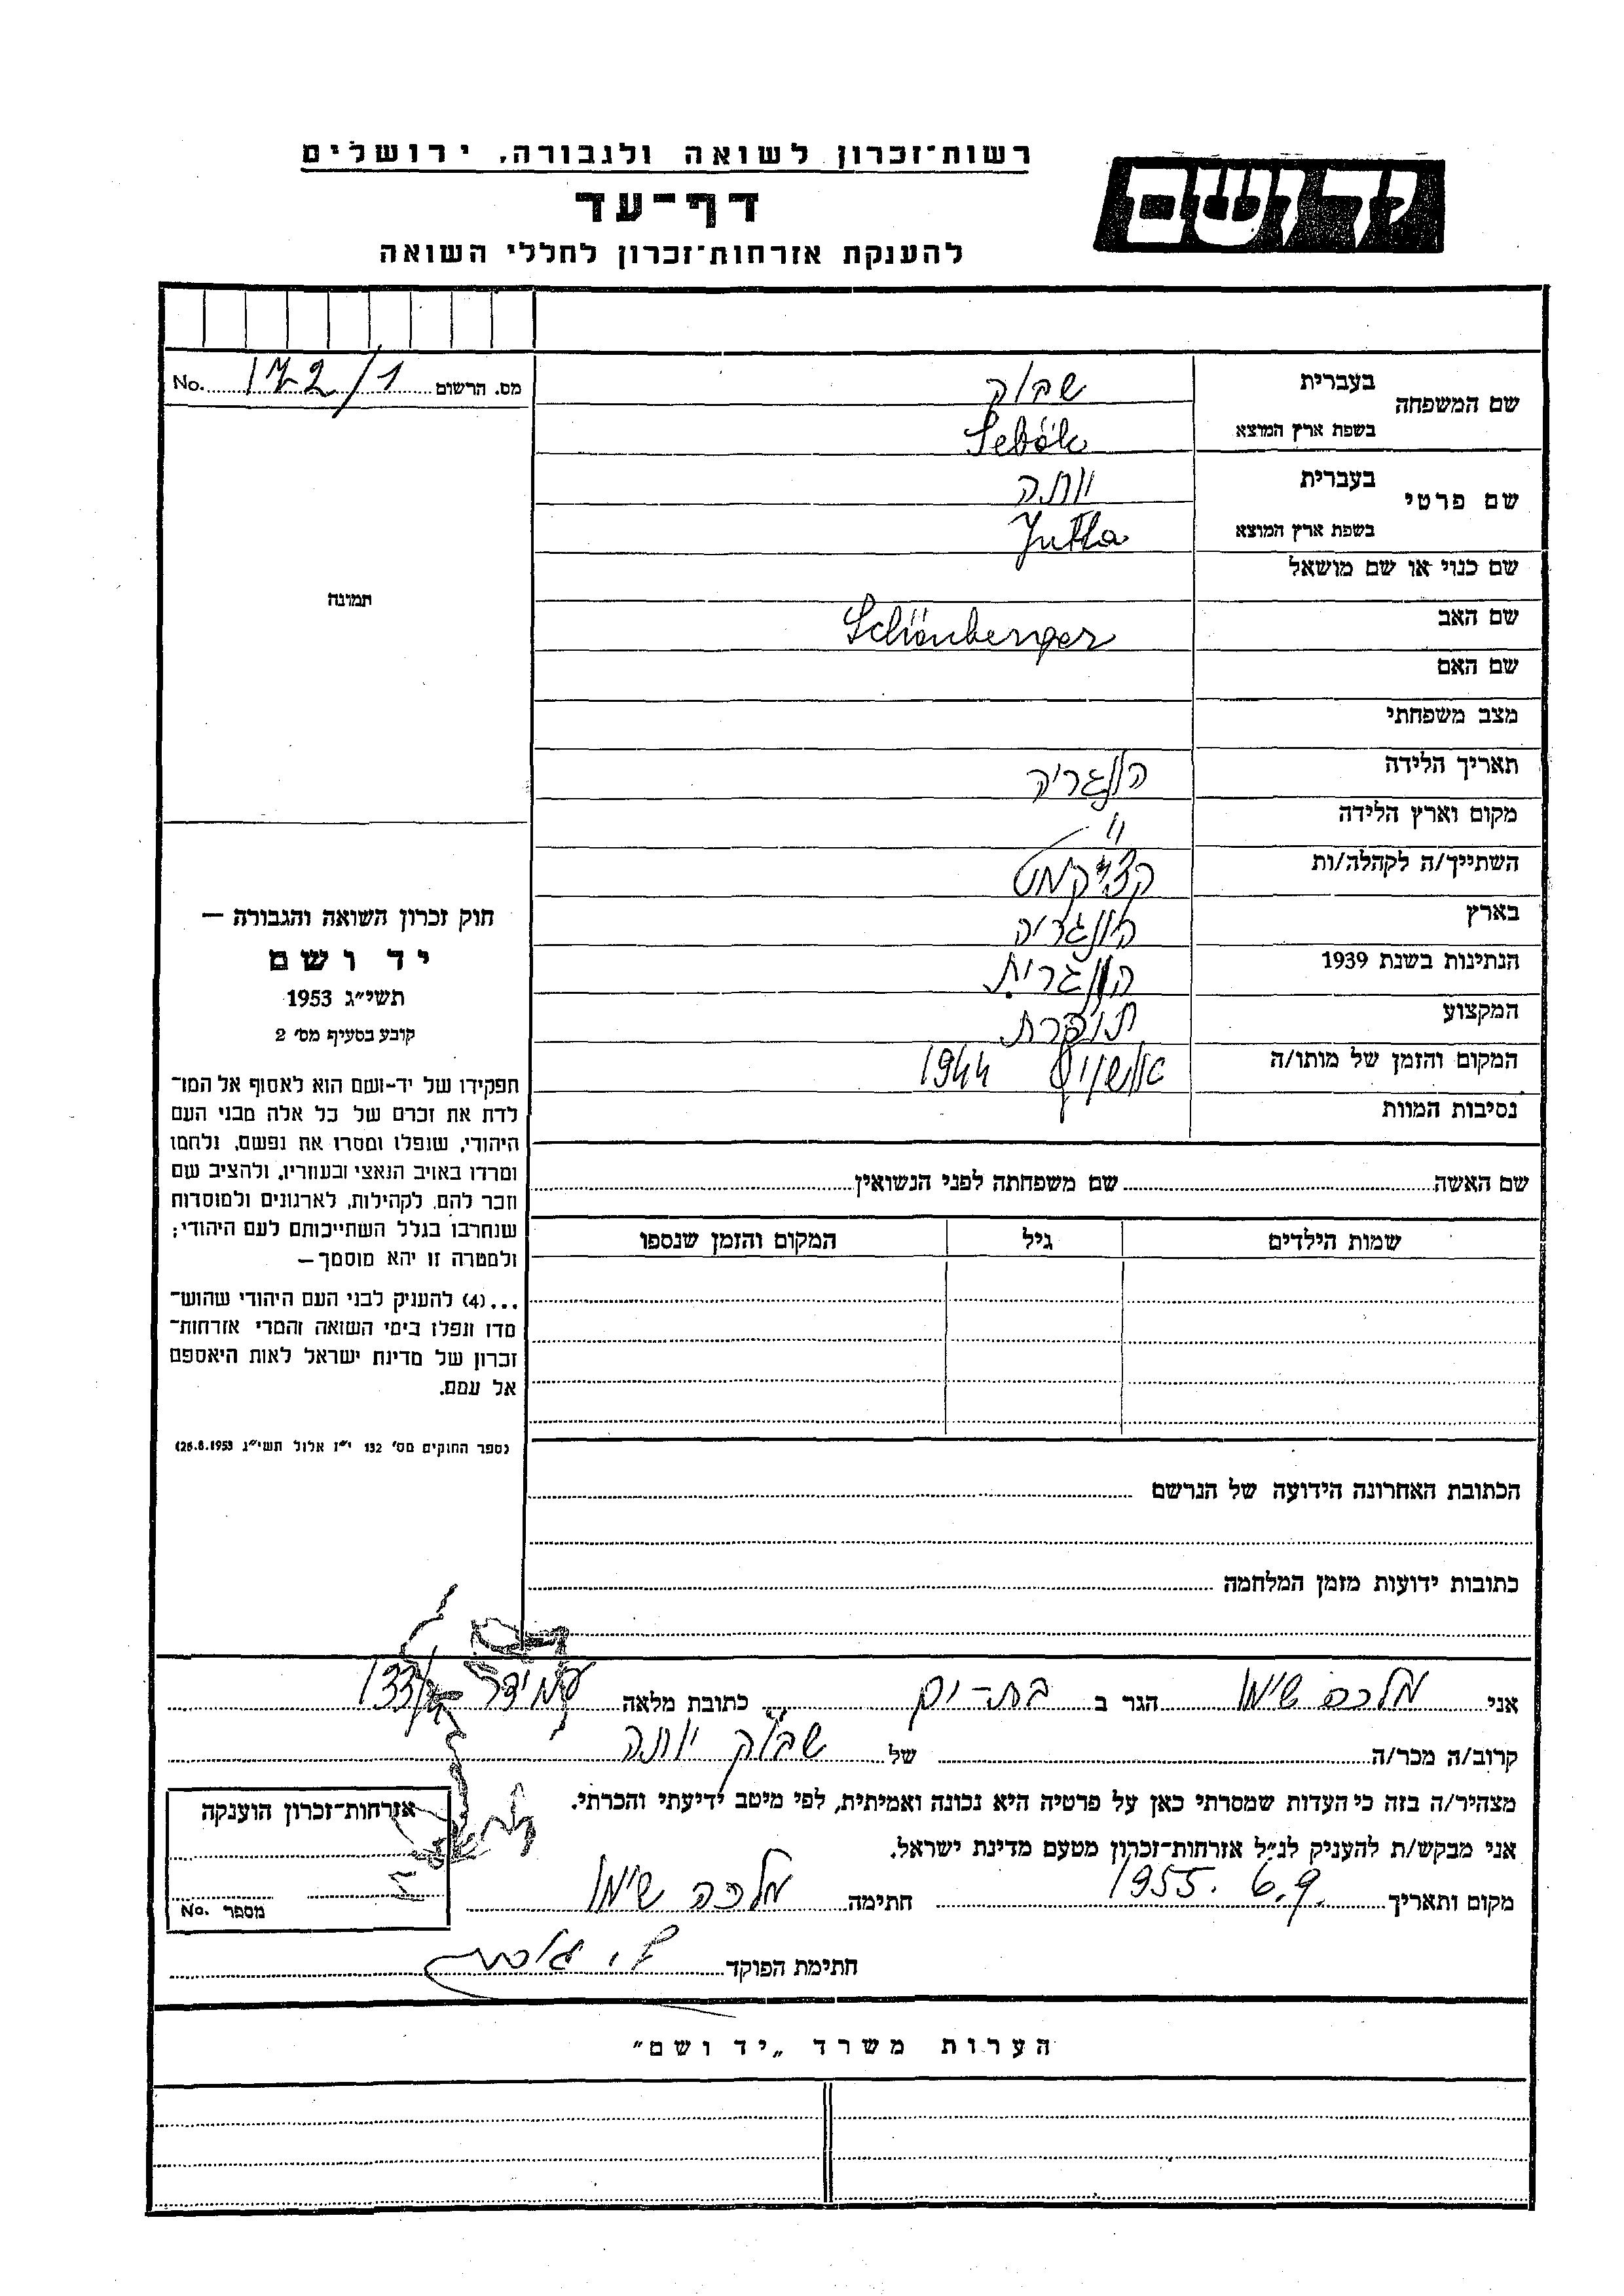 רשות־זכרון לשואה ולגבורה, ירושלים
יד ושם
דף־עד
להענקת אזרחות־זכרון לחללי השואה
מס. הרשום 172/1 No.
שם המשפחה בעברית שבוק
בשפת ארץ המוצא Sebök
שם פרטי בעברית יותה
בשפת ארץ המוצא Jutta
שם כנוי או שם מושאל
שם האב Schönberger
שם האם
מצב משפחתי
תאריך הלידה הונגריה
מקום וארץ הלידה "
השתייך/ה לקהלה/ות
בארץ הונגריה
הנתינות בשנת 1939 הונגרית
המקצוע תופרת
המקום והזמן של מותו/ה אושויץ 1944
נסיבות המוות
תמונה
חוק זכרון השואה והגבורה —
יד ושם
תשי״ג 1953
קובע בסעיף מס׳ 2
תפקידו של יד-ושם הוא לאסוף אל המו־
לדת את זכרם של כל אלה מבני העם
היהודי, שנפלו ומסרו את נפשם, נלחמו
ומרדו באויב הנאצי ובעוזריו, ולהציב שם
וזכר להם, לקהילות, לארגונים ולמוסדות
שנחרבו בגלל השתייכותם לעם היהודי;
ולמטרה זו יהא מוסמך—
...(4) להעניק לבני העם היהודי שהוש־
מדו ונפלו בימי השואה והמרי אזרחות־
זכרון של מדינת ישראל לאות היאספם
אל עמם.
(ספר החוקים מס׳ 132 י״ז אלול תשי״ג 26.8.1953)
שם האשה שם משפחתה לפני הנשואין
שמות הילדים גיל המקום והזמן שנספו
הכתובת האחרונה הידועה של הנרשם
כתובות ידועות מזמן המלחמה
אני מלכה שימו הגר ב בת-ים כתובת מלאה עמידר 133
קרוב/ה מכר/ה של שבוק יותה
מצהיר/ה בזה כי העדות שמסרתי כאן על פרטיה היא נכונה ואמיתית, לפי מיטב ידיעתי והכרתי.
אני מבקש/ת להעניק לנ״ל אזרחות־זכרון מטעם מדינת ישראל.
מקום ותאריך 6.9.1955 חתימה מלכה שימו
חתימת הפוקד
אזרחות־זכרון הוענקה
מספר No.
הערות משרד „יד ושם״